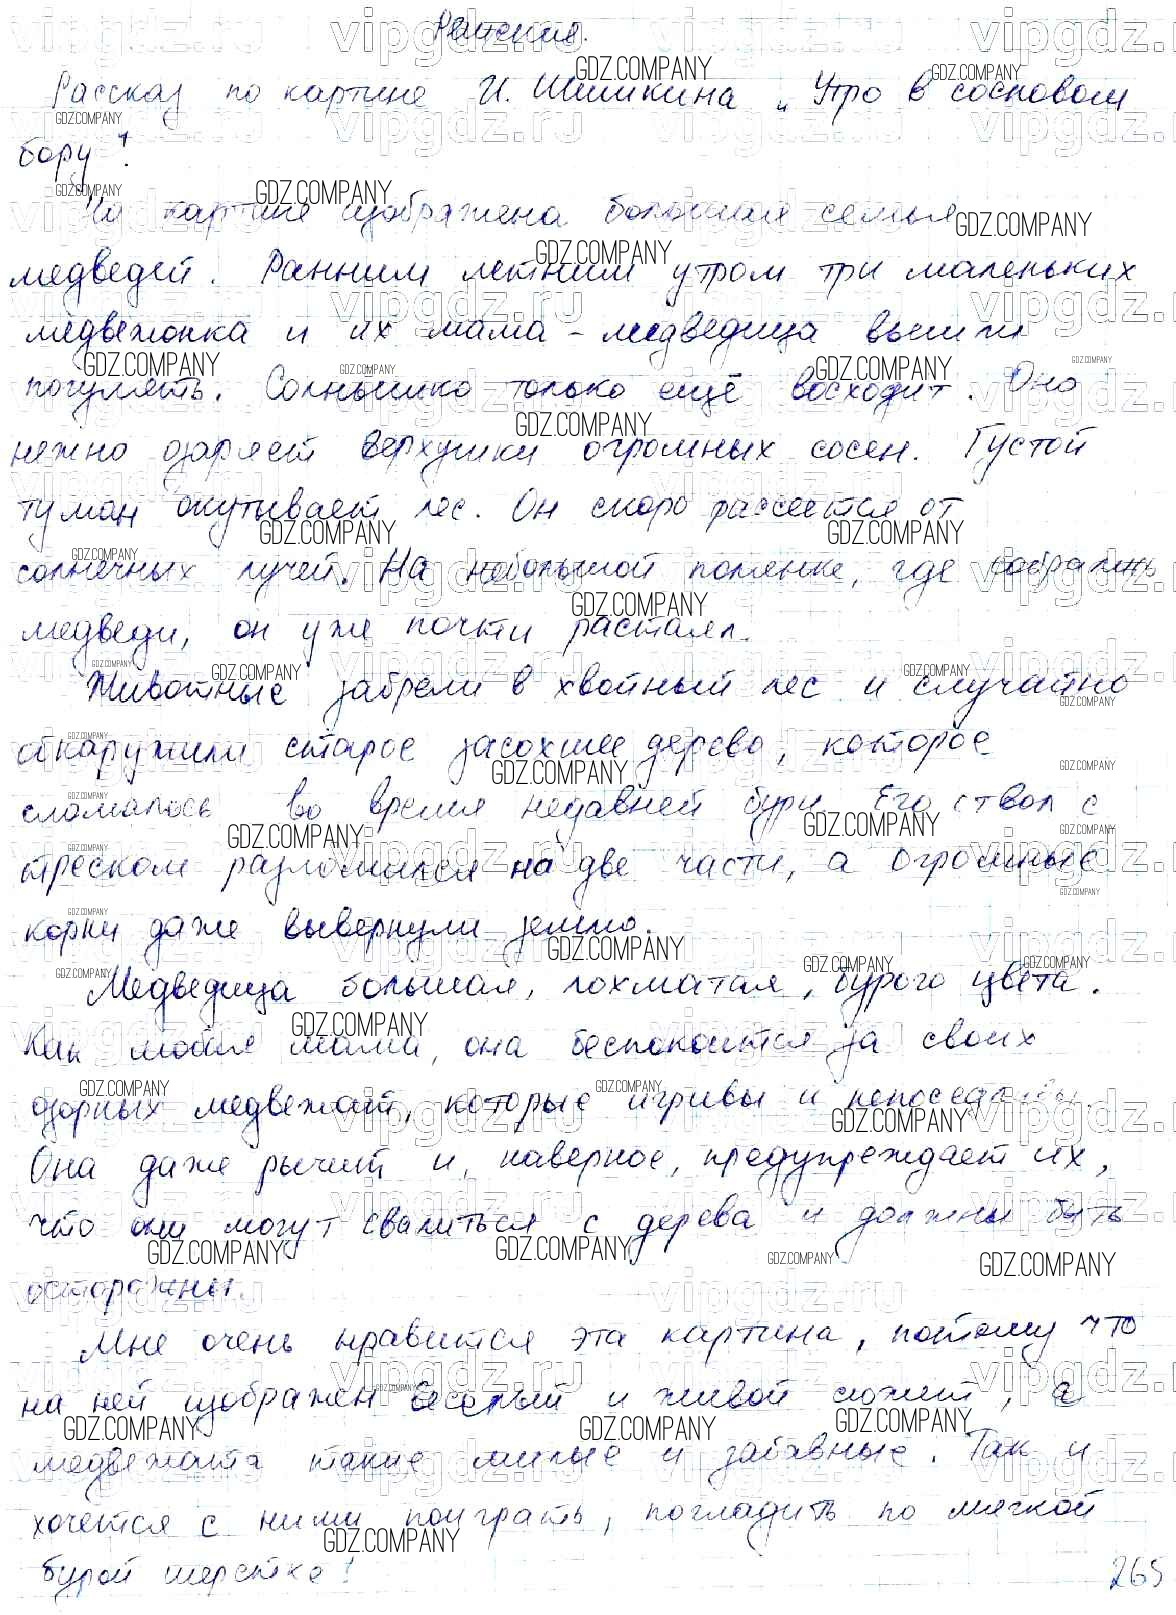 Решение.
Рассказ по картине И. Шишкина „Утро в сосновом
бору".
На картине изображена большая семья
медведей. Ранним летним утром три маленьких
медвежонка и их мама - медведица вышли
погулять. Солнышко только ещё восходит. Оно
нежно озаряет верхушки огромных сосен. Густой
туман окутывает лес. Он скоро рассеется от
солнечных лучей. На небольшой полянке, где собрались
медведи, он уже почти растаял.
Животные забрели в хвойный лес и случайно
обнаружили старое засохшее дерево, которое
сломалось во время недавней бури. Его ствол с
треском разломился на две части, а огромные
корни даже вывернули землю.
Медведица большая, лохматая, бурого цвета.
Как любая мама, она беспокоится за своих
озорных медвежат, которые игривы и непоседливы.
Она даже рычит и, наверное, предупреждает их,
что они могут свалиться с дерева и должны быть
осторожны.
Мне очень нравится эта картина, потому что
на ней изображен веселый и живой сюжет, а
медвежата такие милые и забавные. Так и
хочется с ними поиграть, погладить по мягкой
бурой шерстке!
265
vipgdz.ru
GDZ.COMPANY